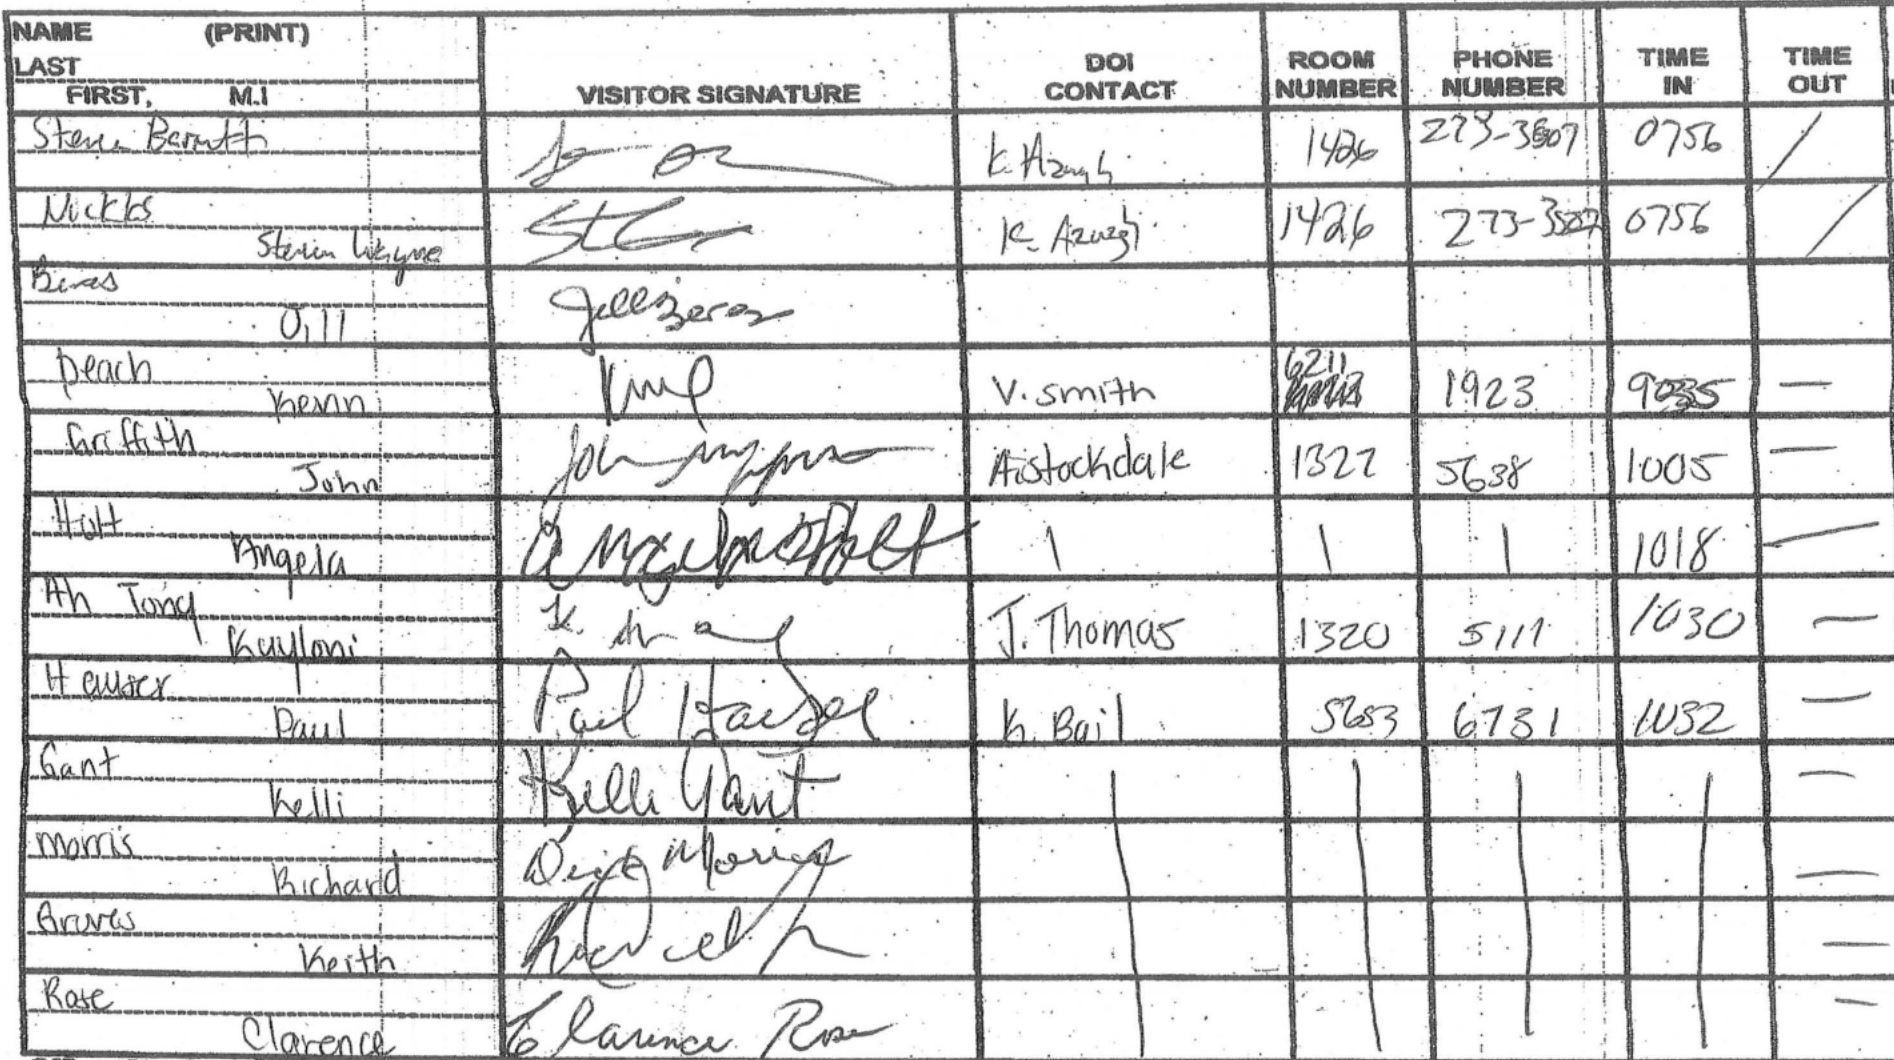 NAME (PRINT)
LAST
FIRST, M.I
VISITOR SIGNATURE
DOI CONTACT
ROOM NUMBER
PHONE NUMBER
TIME IN
TIME OUT
Steven 1426 273-3507 0756 /
Nickks
Steven Wayne K. 1426 273-3507 0756 /
Jill
Deach
Kevin V. Smith 6211 1923 —
Griffith
John John Stockdale 1322 5638 1005 —
Holt
Angela Angela Holt | | | 1018 —
Ah Tong
Kayloni K. J. Thomas 1320 5111 1030 —
Hauser
Paul Paul Hauser K. Bail 5653 6731 1032 —
Gant
Kelli Kelli Gant | | | | —
Morris
Richard Dick Morris —
Graves
Keith —
Rose
Clarence Clarence Rose —